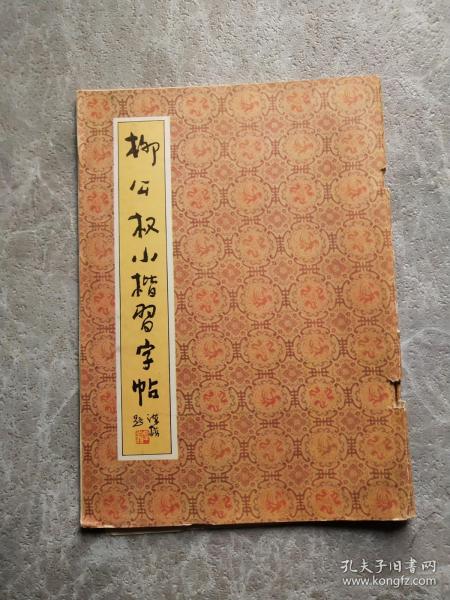 柳公权小楷習字帖
题
孔夫子旧书网
www.kongfz.com